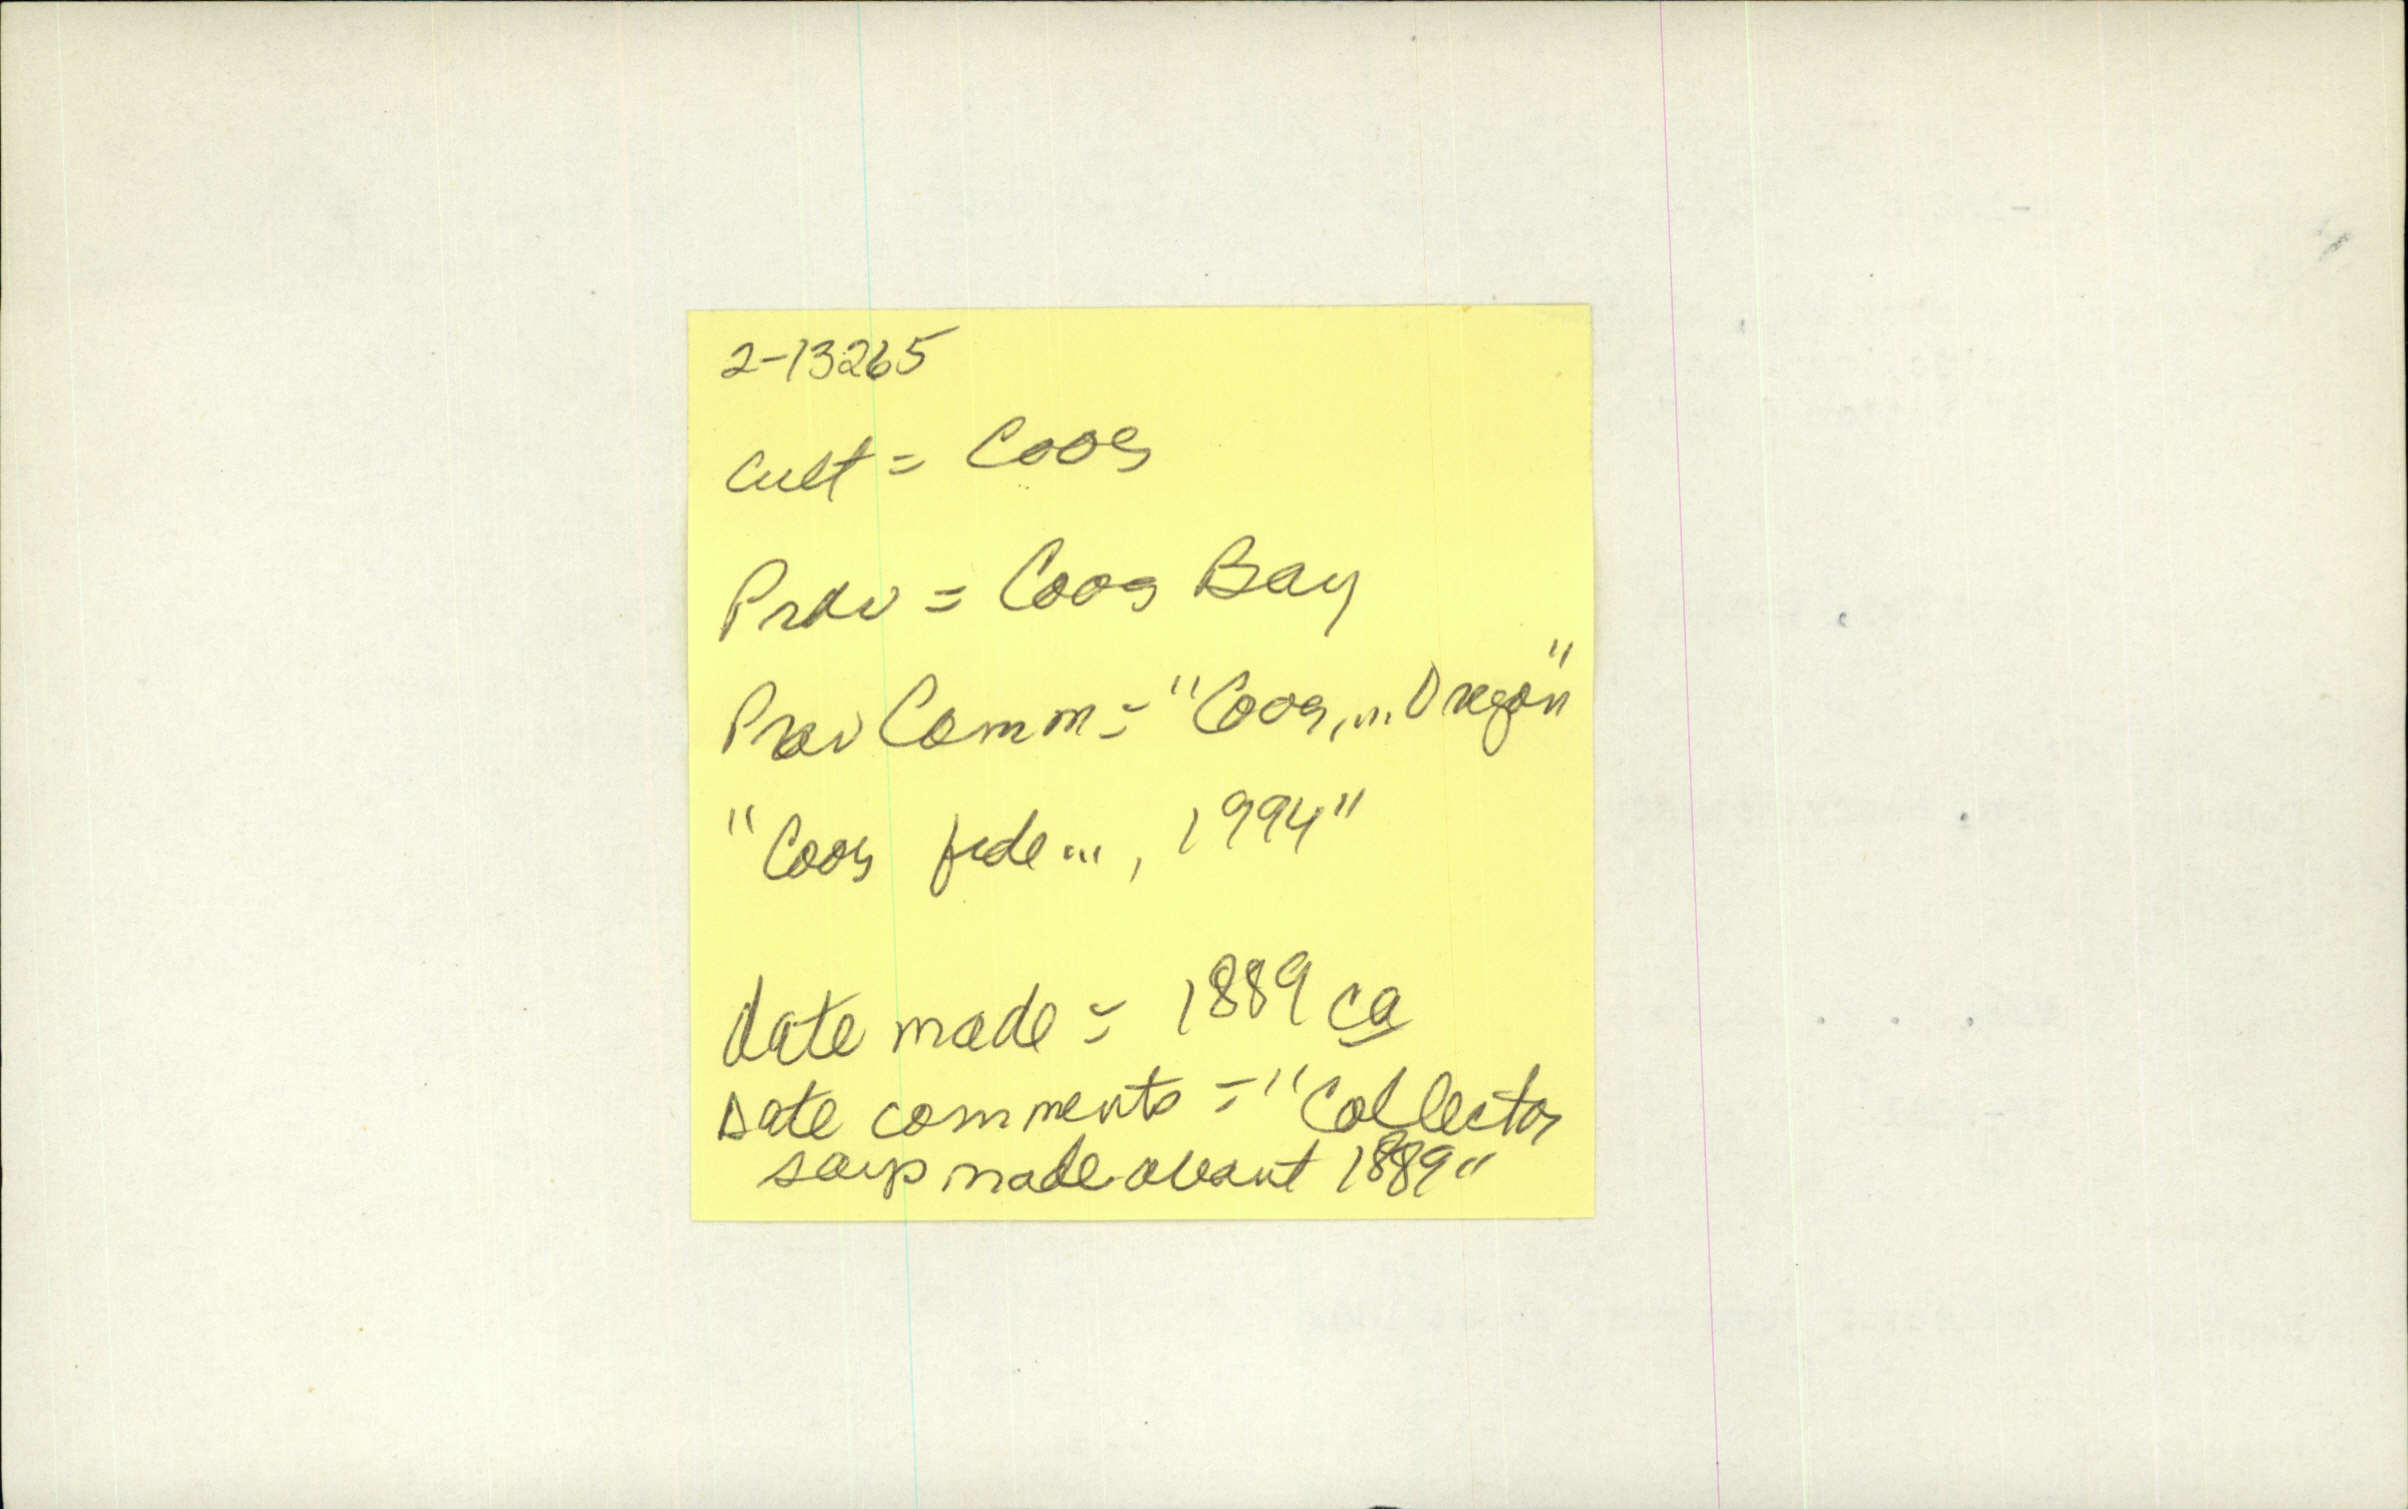 2-13265
Cult = Coos
Prov = Coos Bay
Prov Comm = "Coos,... Oregon"
"Coos fide..., 1994"
date made = 1889 ca
Date comments = "Collector
says made about 1889"